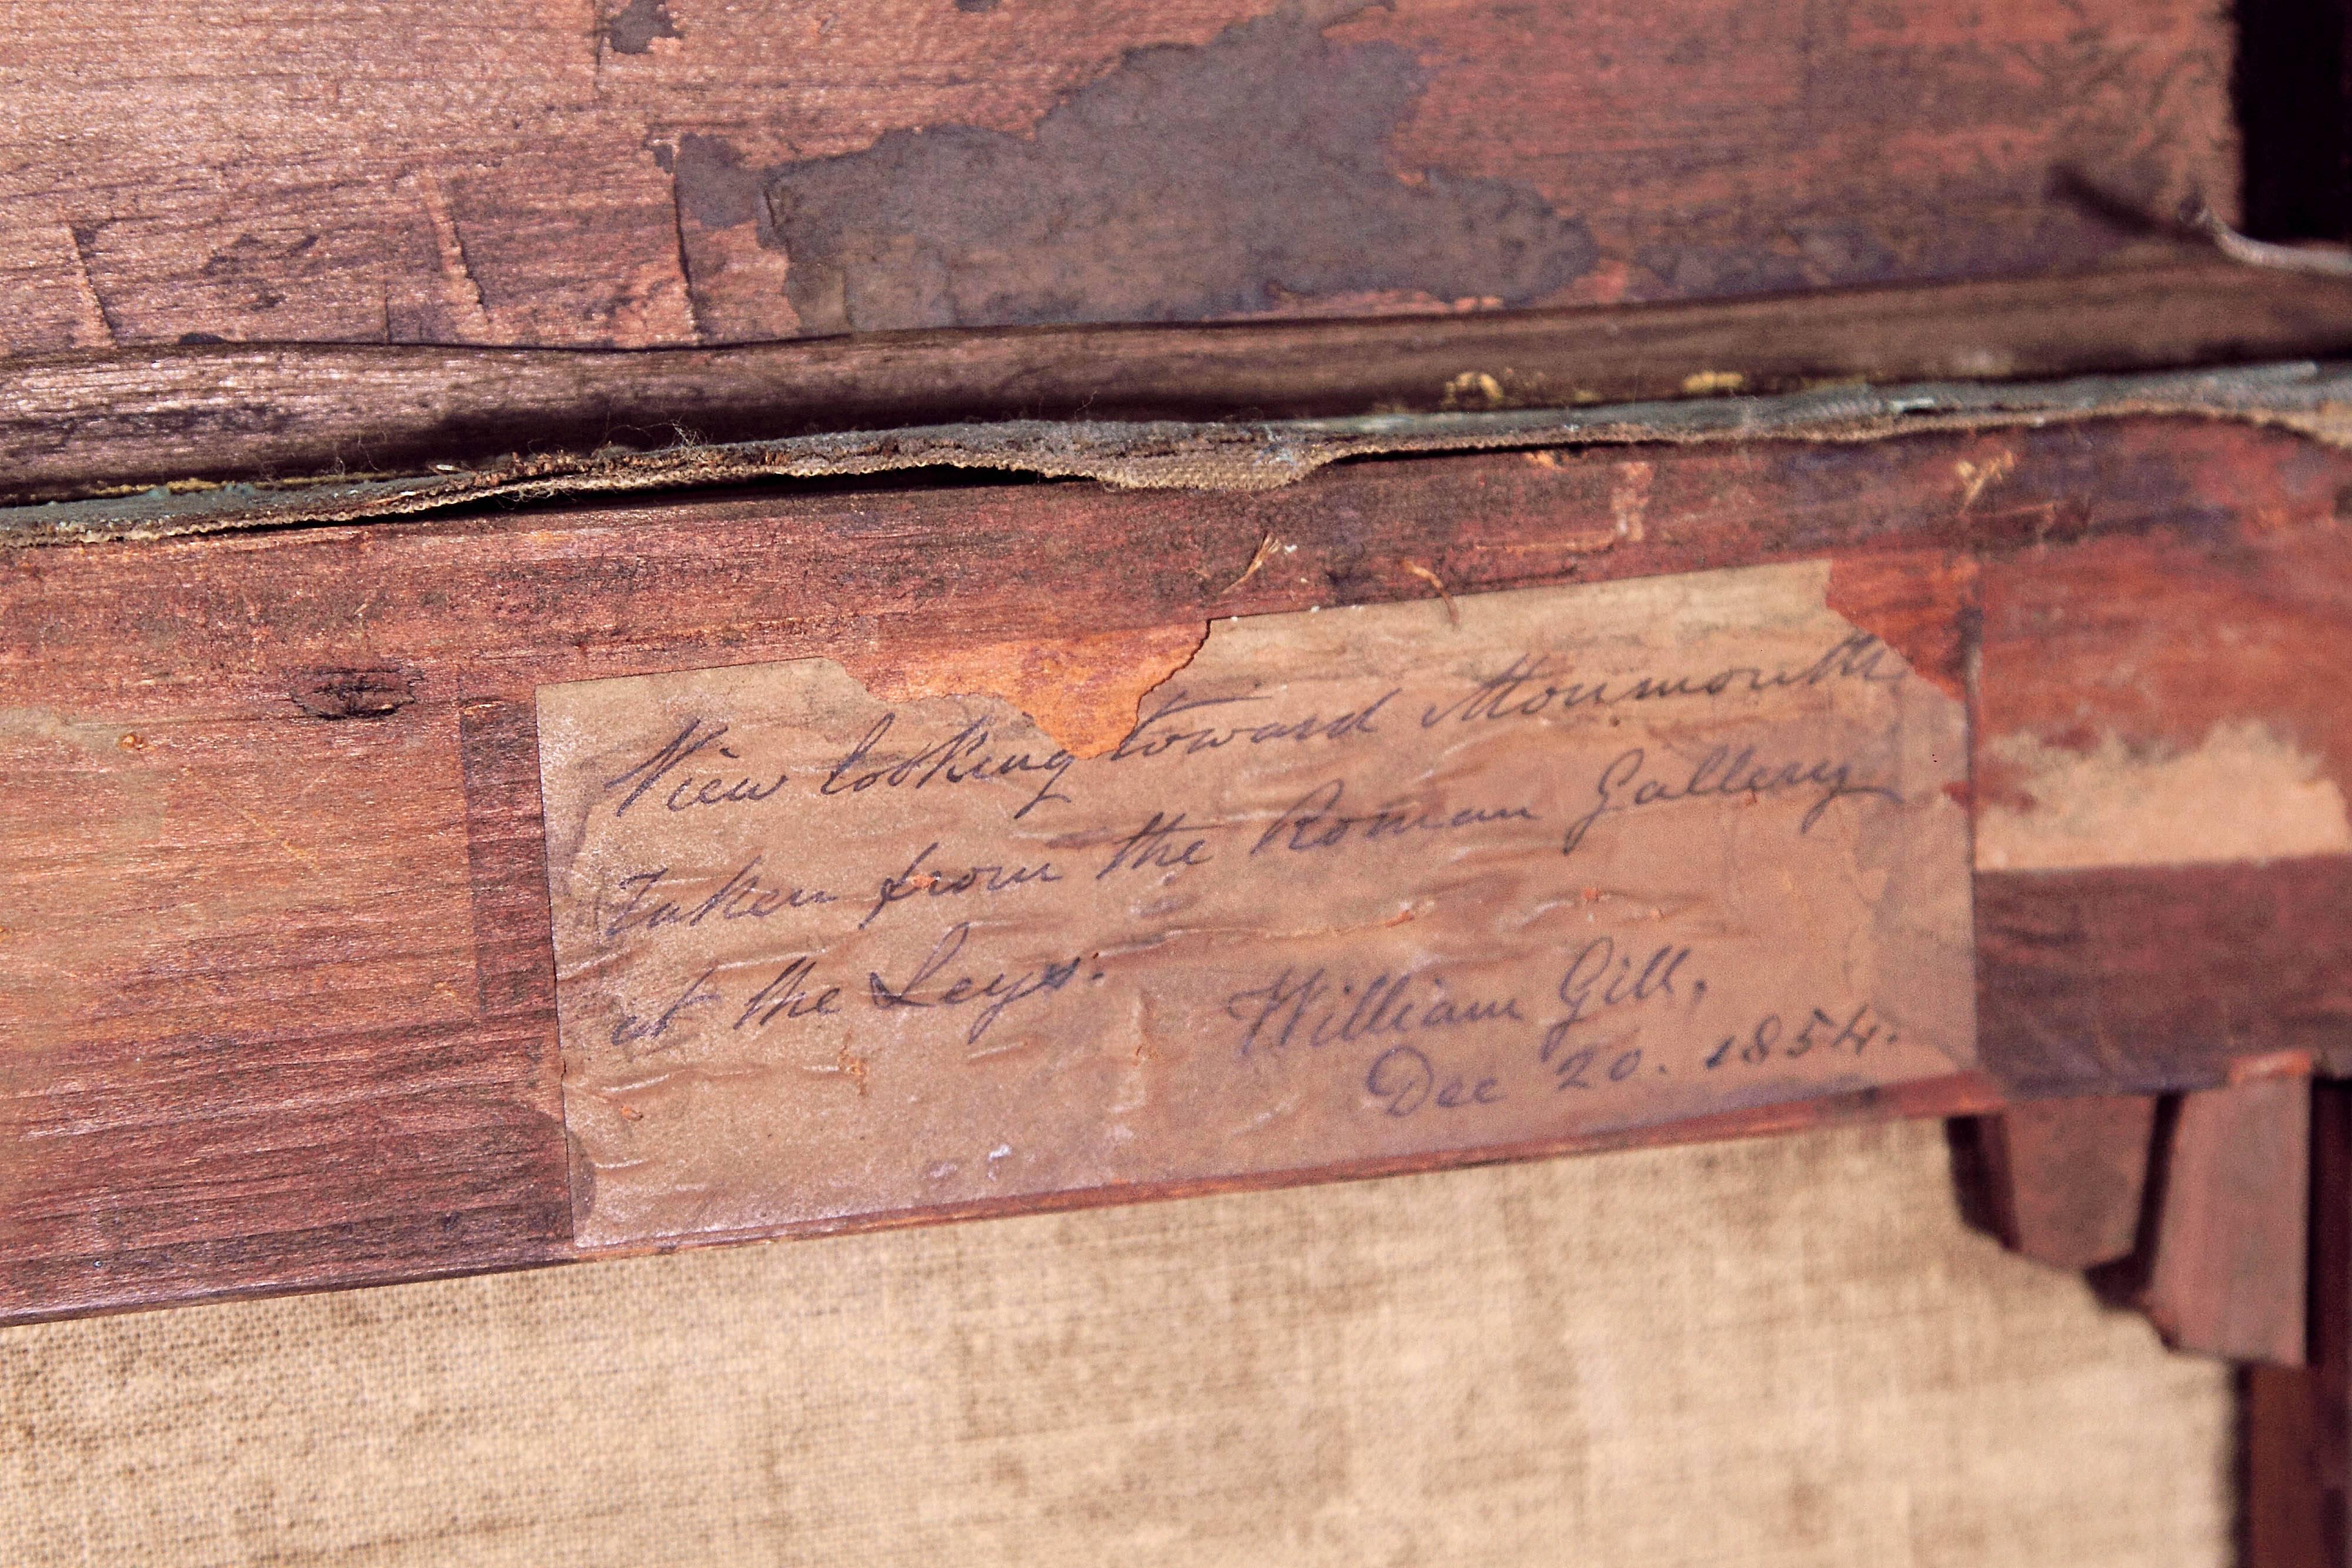 View looking toward Monmouth
Taken from the Roman Gallery
at the Leys.
William Gill,
Dec 20. 1854.